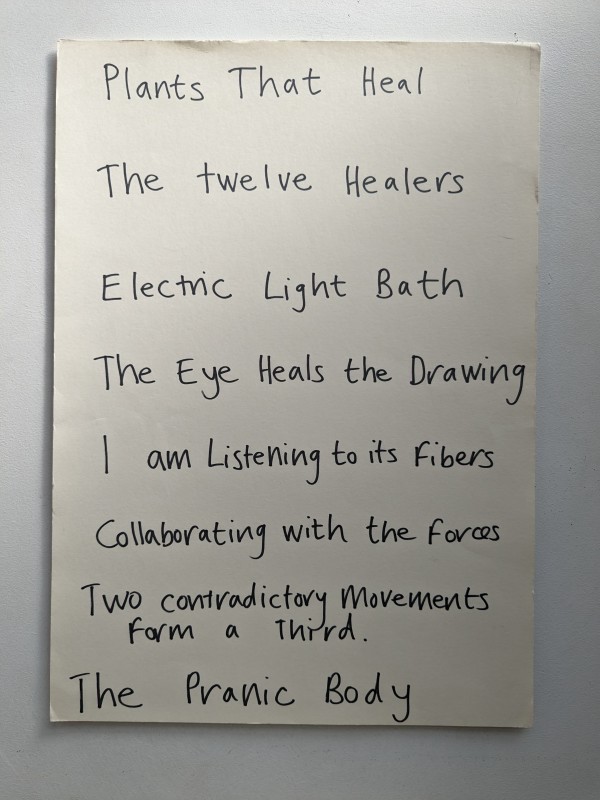 Plants That Heal
The twelve Healers
Electric Light Bath
The Eye Heals the Drawing
I am Listening to its Fibers
Collaborating with the forces
Two contradictory Movements
form a Third.
The Pranic Body